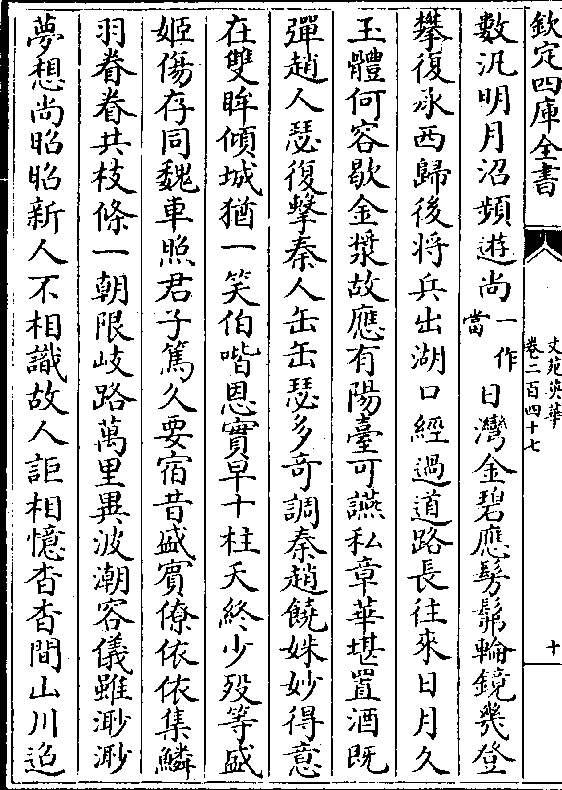 欽定四庫全書
文苑英華
卷二百四十七
十
數汎明月沼頻遊尚一作當日灣金碧應髣髴輪鏡幾登
攀復承西歸後将兵出湖口經過道路長往來日月久
玉體何容歇金漿故應有陽臺可讌私章華堪置酒既
彈趙人瑟復擊秦人缶缶瑟多奇調秦趙饒姝妙得意
在雙眸傾城猶一笑伯喈恩實早十柱夭終少歿等盛
姬傷存同魏車照君子篤久要宿昔盛賓僚依依集鱗
羽眷眷共枝條一朝限岐路萬里異波潮容儀雖渺渺
夢想尚昭昭新人不相識故人詎相憶杳杳間山川迢